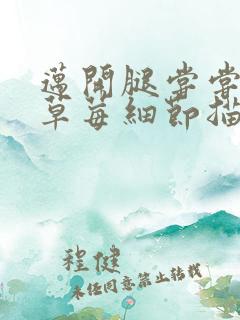 迈開腿尝尝
草莓細節描
程健
未任同意禁止转载